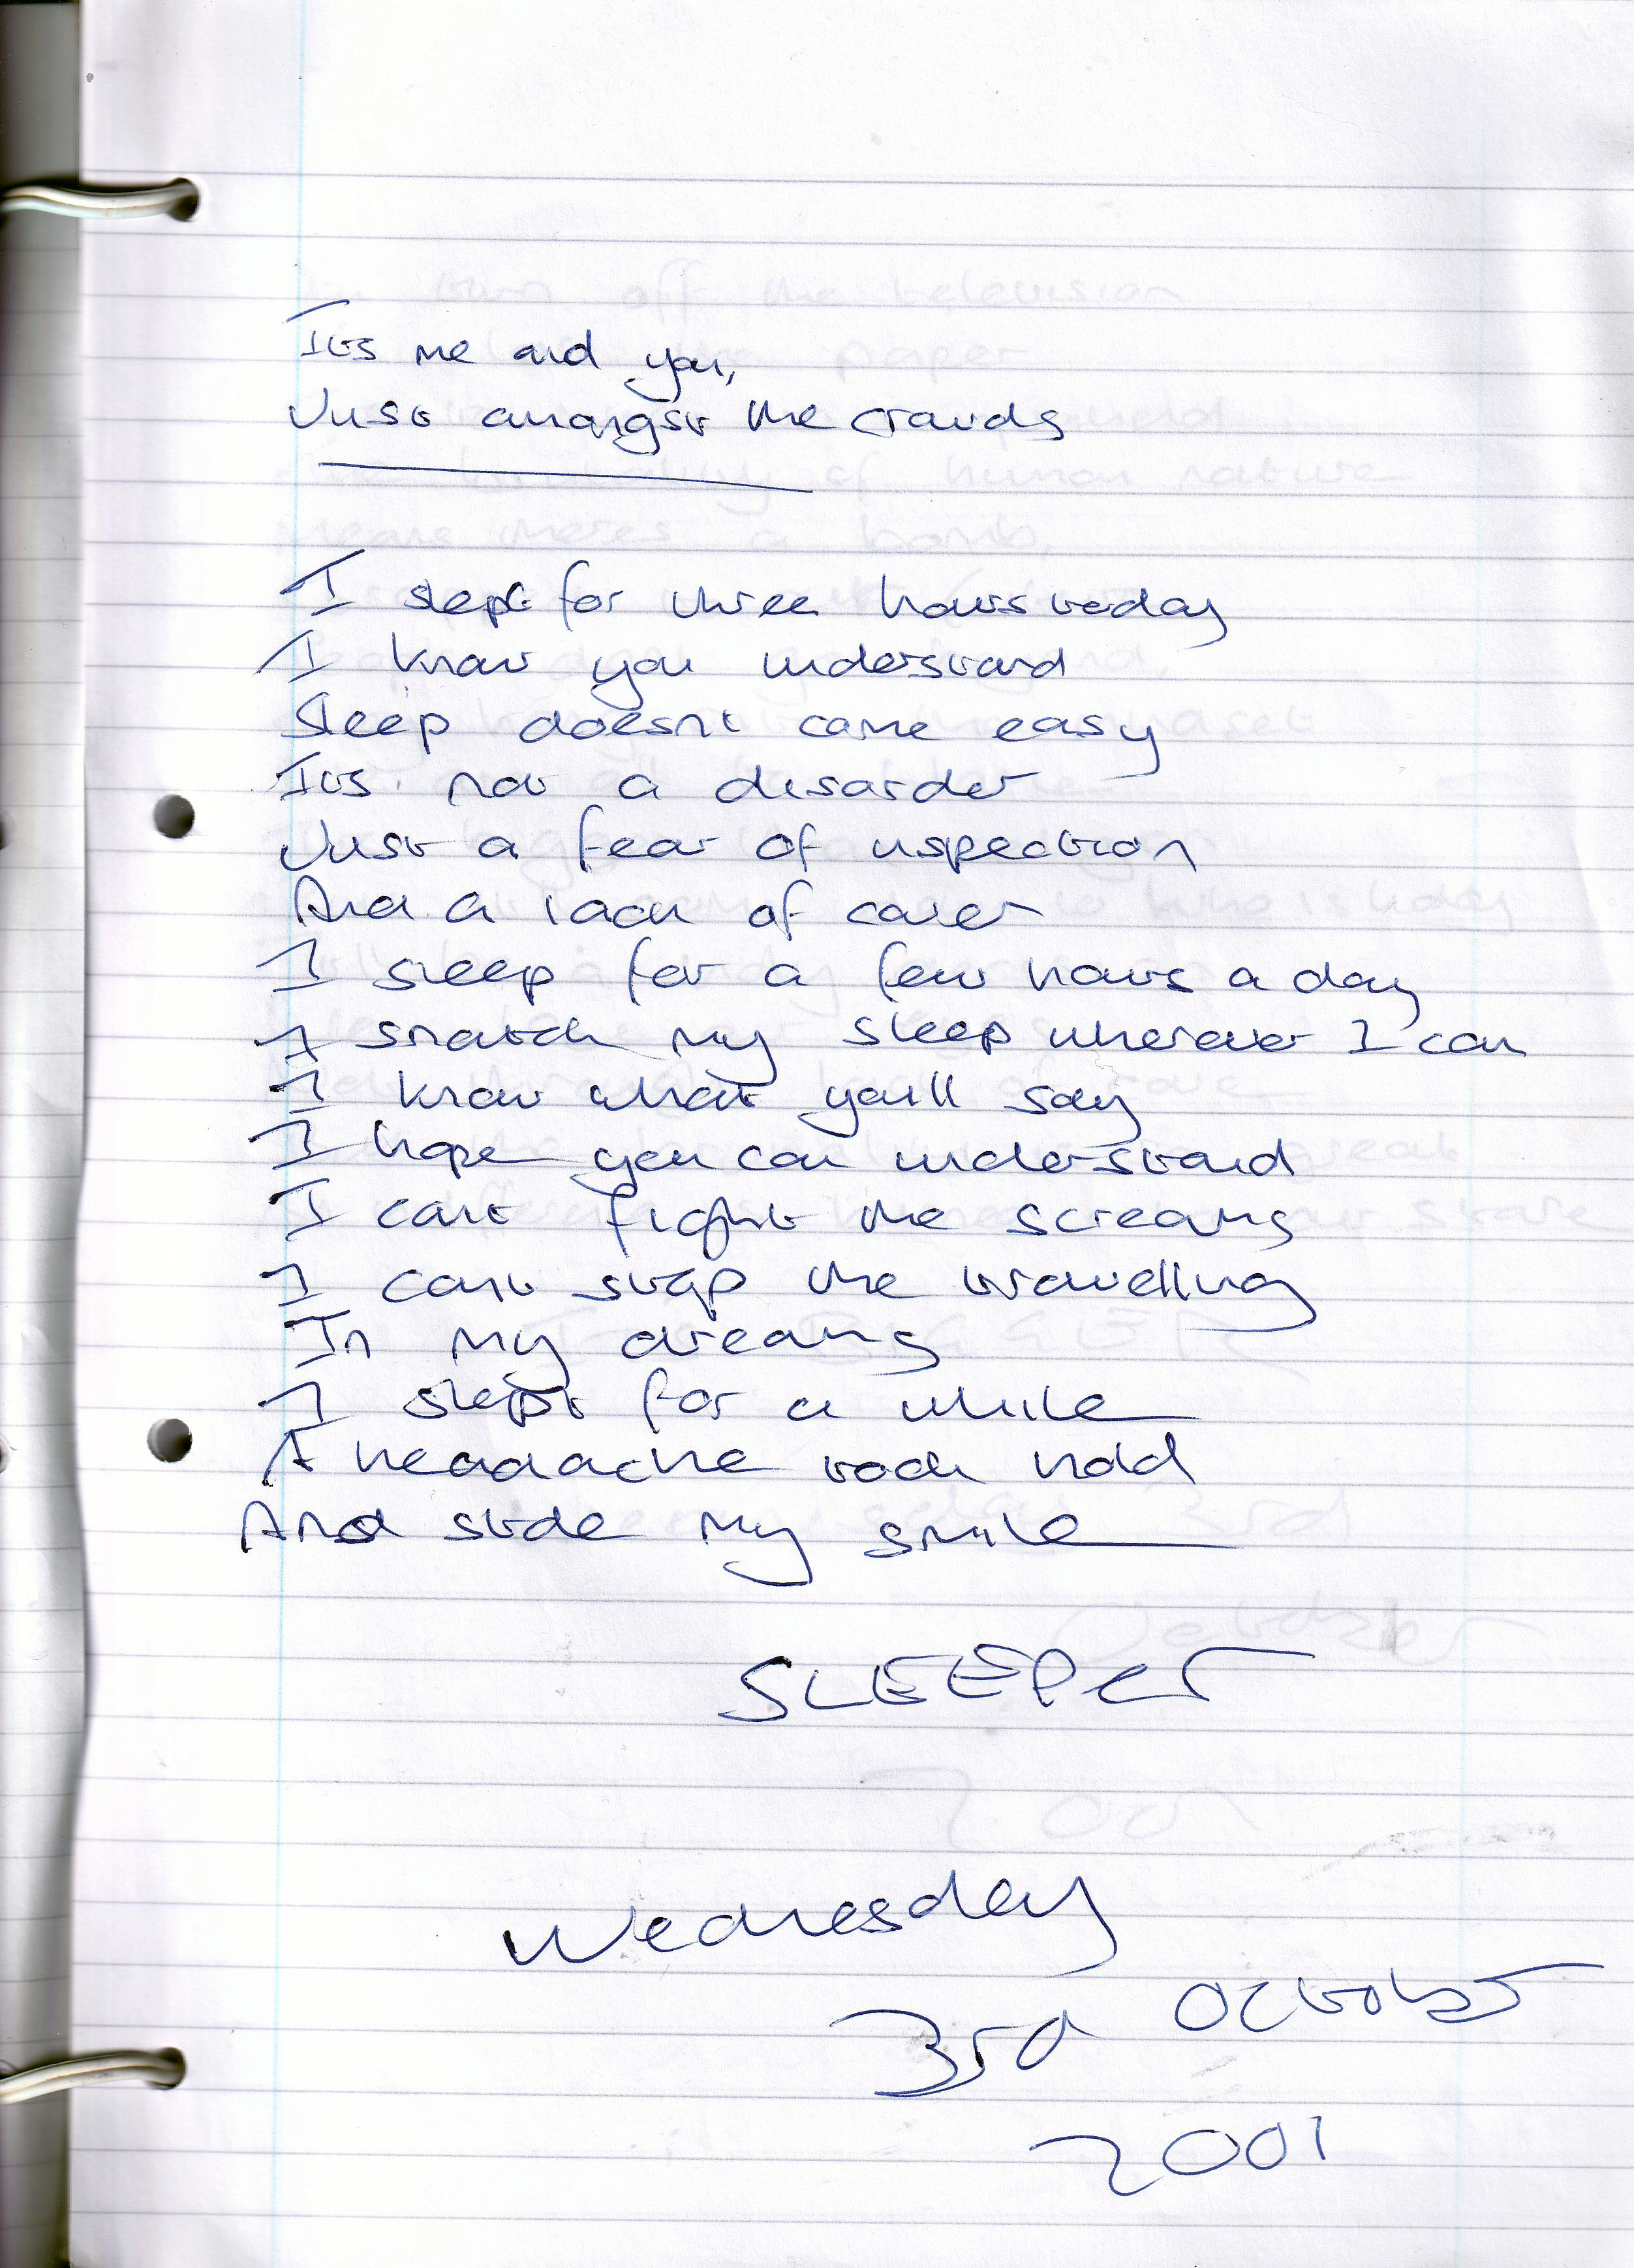 Its me and you,
Just amongst the crowds
I slept for three hours today
I know you understand
Sleep doesnt come easy
Its not a disorder
Just a fear of inspection
And a lack of cover
I sleep for a few hours a day
I snatch my sleep wherever I can
I know what youll say
I hope you can understand
I cant fight the screams
I cant stop the travelling
In my dreams
I slept for a while
A headache took hold
And stole my smile
SLEEPER
Wednesday
3rd October
2001